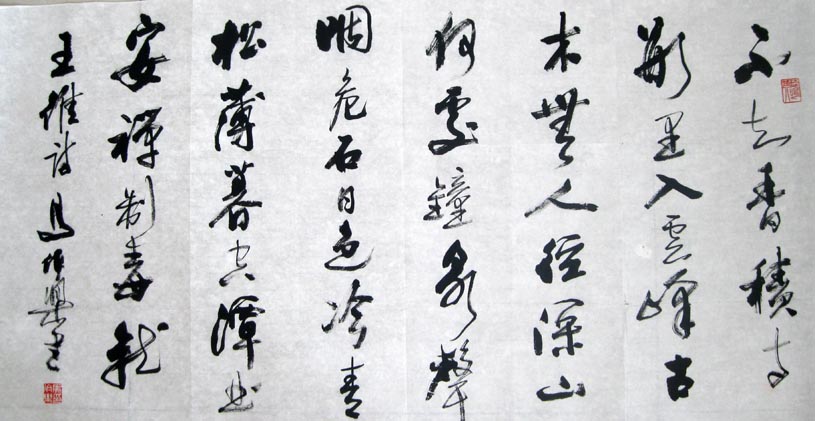 不知香積寺
數里入雲峰古
木無人徑深山
何處鐘泉聲
咽危石日色冷青
松薄暮空潭曲
安禪制毒龍
王維詩書